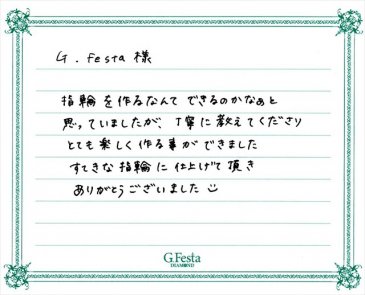 G.Festa 様
指輪を作るなんてできるのかなぁと
思っていましたが、丁寧に教えてくださり
とても楽しく作る事ができました
すてきな指輪に仕上げて頂き
ありがとうございました☺
G.Festa
DIAMOND